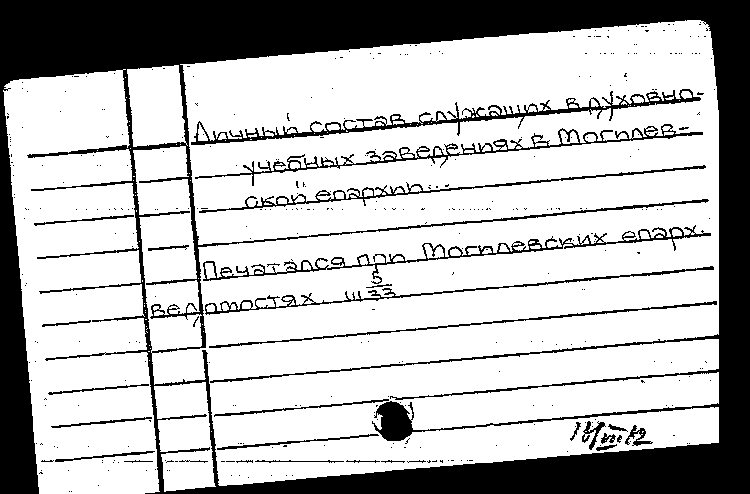 Личный состав служащих в духовно-
учебных заведениях в Могилев-
ской епархии...
Печатался при Могилевских епарх.
ведомостях. Ш 5/33